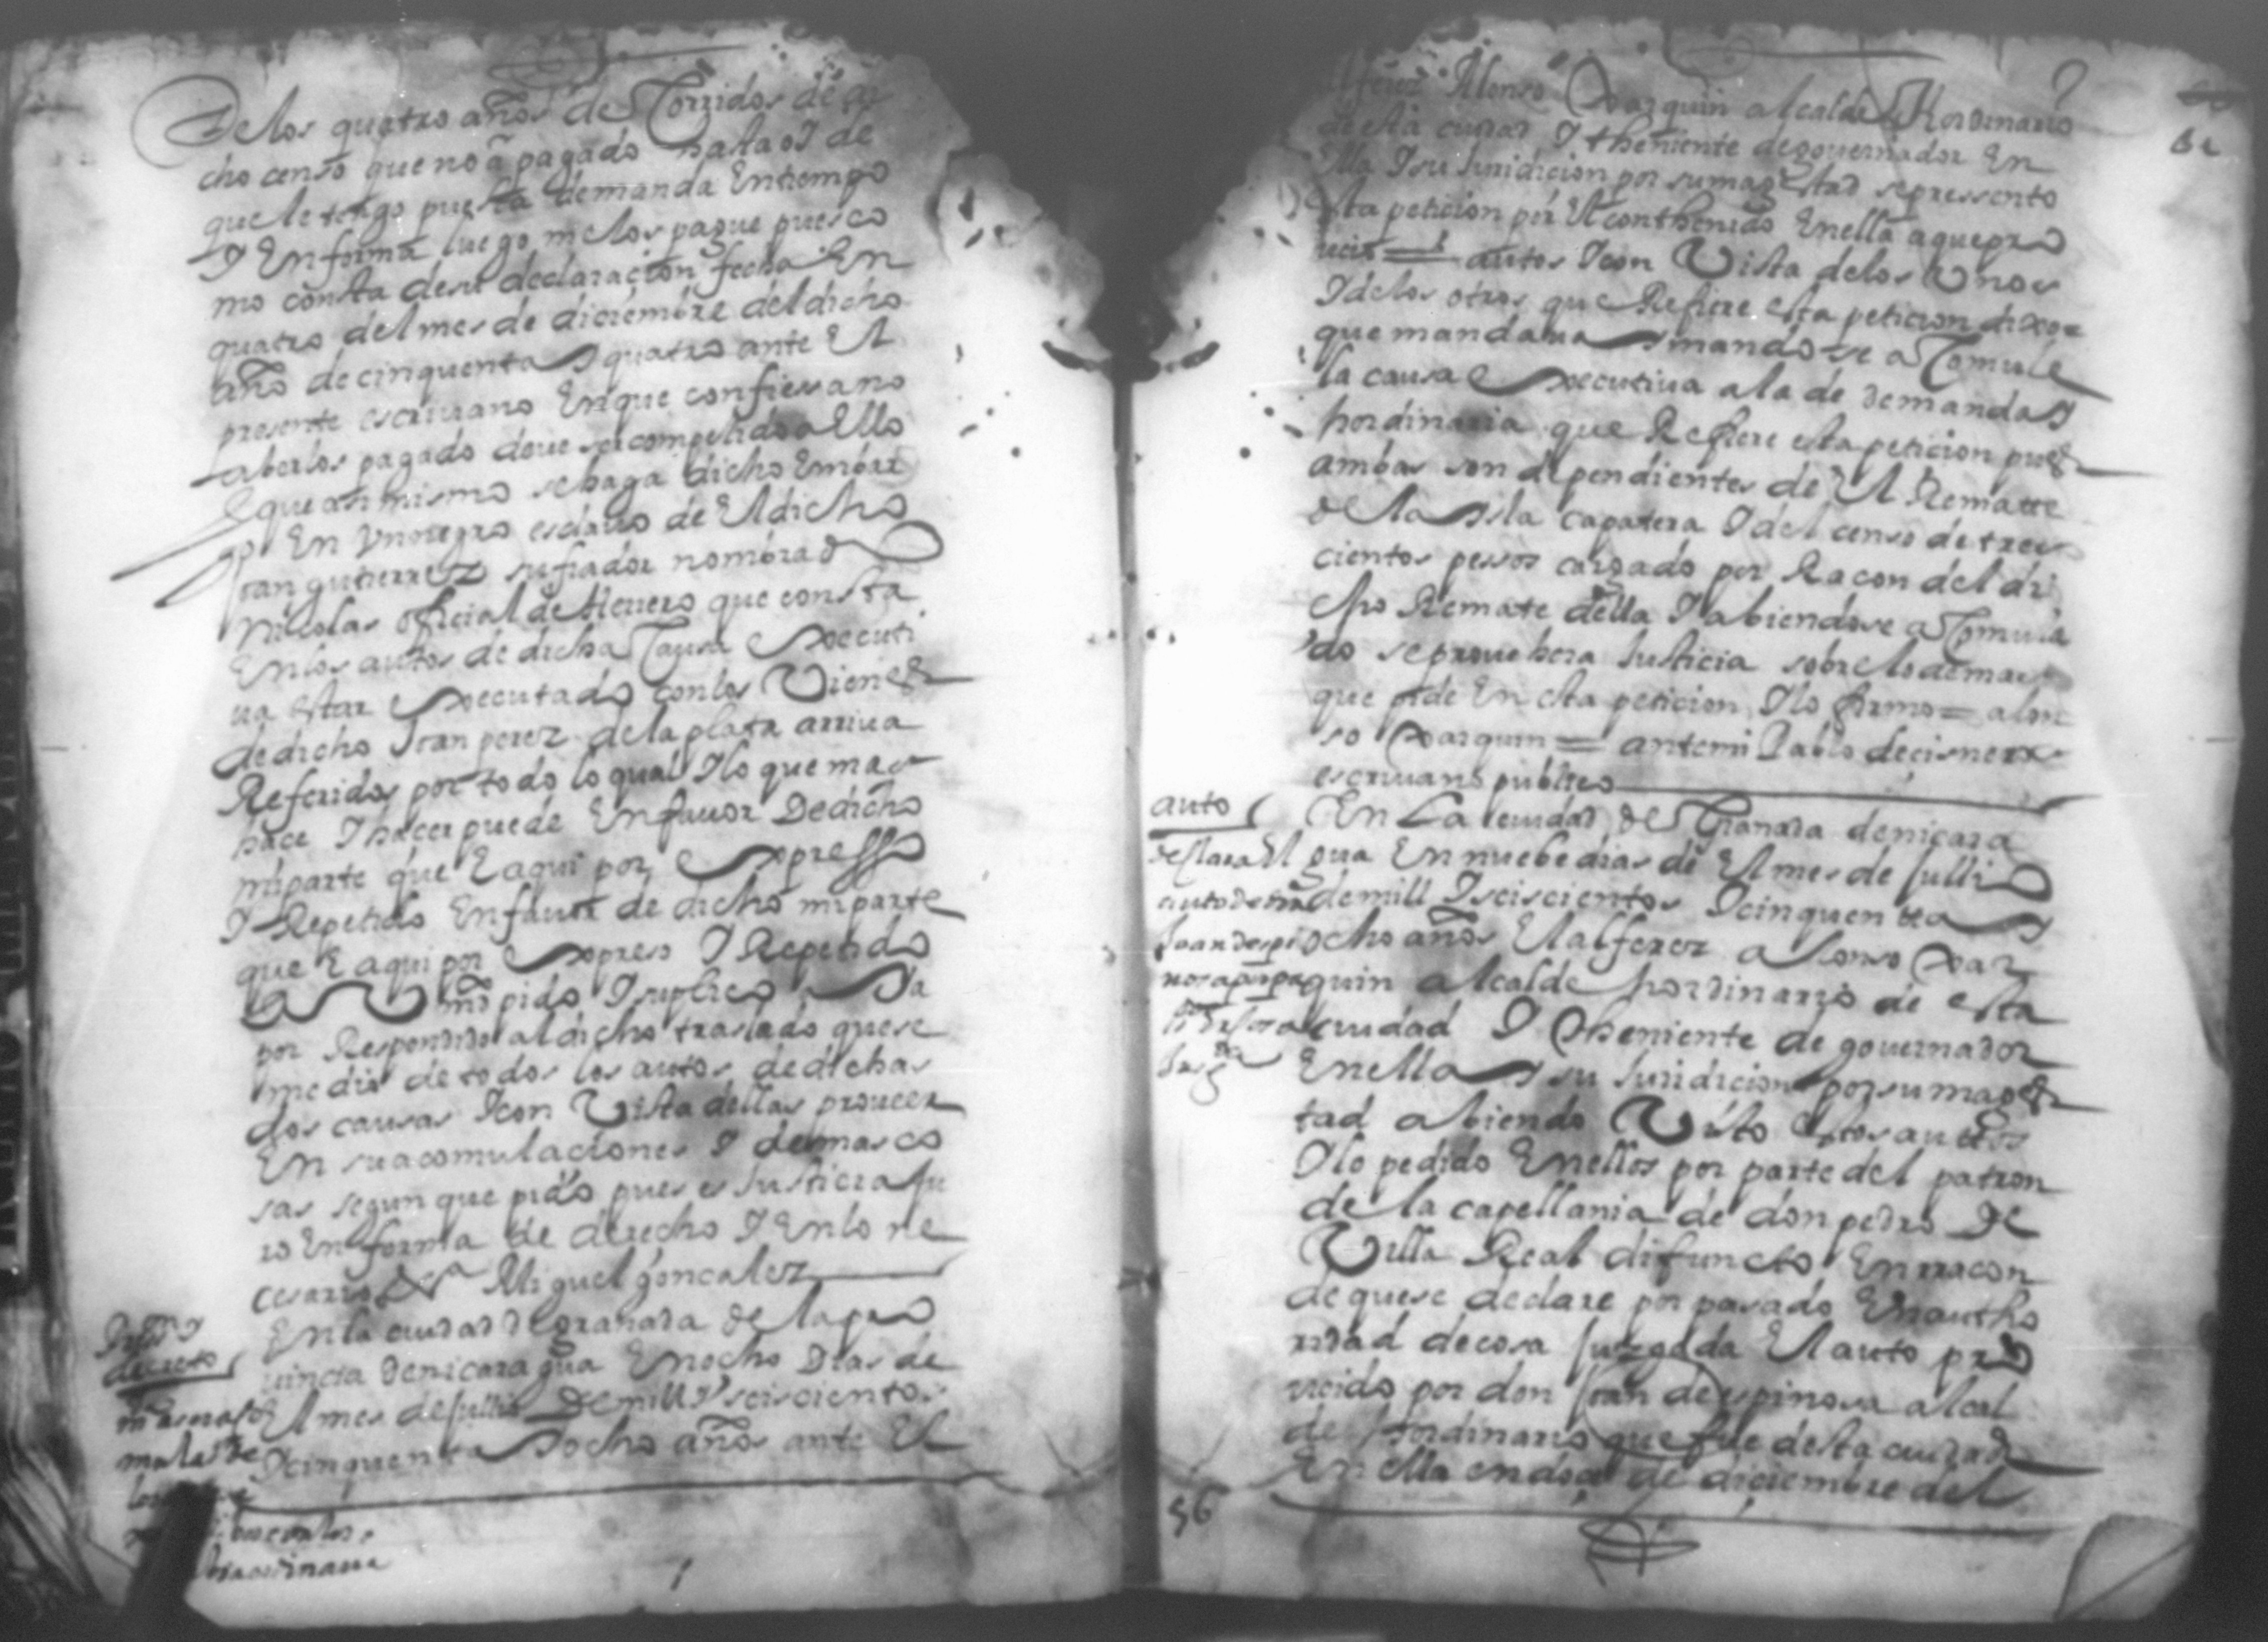 De los quatro años de Corridos de di
cho censo que no a pagado hasta oi de
que le tengo puesta demanda En tiempo
I En forma luego me los pague pues co
mo consta de su declaracion fecha En
quatro del mes de diciembre del dicho
año de cinquenta I quatro ante El
presente escriuano En que confiessa no
aberlos pagado deue ser compelido a Ello
I que asi mismo se haga dicho Embar
go En Un negro esclauo de El dicho
Juan gutierrez su fiador nombrado
nicolas oficial de Herrero que consta
En los autos de dicha Causa Executi
ua estar Executado con los Vienes
de dicho Juan perez de la plata arriua
Referidos por todo lo qual I lo que mas
hace I hacer puede En fauor De dicho
mi parte que E aqui por Expresso
I Repetido En fauor de dicho mi parte
que E aqui por Expreso I Repetido
A Vmd pido I suplico Da
por Respondido al dicho traslado que se
me dio de todos los autos de dichas
dos causas I con Vista dellas proueer
En su acomulaciones I demas co
sas segun que pido pues es Justicia Ju
ro En forma de derecho I En lo ne
cesario Miguel goncalez
En la ciudad De granada de la pro
decreto
uincia de nicaragua En ocho Dias de
El mes de Jullio De mill I seiscientos
I cinquenta I ocho años ante El
alferez Alonso Xarquin alcalde Hordinario
de esta ciudad I theniente de gouernador En
Ella I su Juridicion por su magestad se pressento
Esta peticion por El conthenido En ella a que pro
ueio = autos I con Vista de los Unos
I de los otros que Refiere esta peticion dixo
que mandaua I mando se aComule
la causa Executiua a la de demanda
hordinaria que Refiere esta peticion pues
ambas son dependientes de El Remate
de la Isla capatera I del censo de tres
cientos pessos cargado por Racon del di
cho Remate della I abiendose aComula
do se prouehera Justicia sobre lo demas
que pide En esta peticion I lo firmo = alon
so Xarquin = ante mi Pablo de cisneros
escriuano publico
auto
En La ciudad De Granada de nicara
declara El gua En nuebe dias de El mes de Jullio
de mill I seiscientos I cinquenta I
ocho años El alferez alonso Xar
quin alcalde hordinario de esta
ciudad I theniente de gouernador
En ella I su Juridicion por su mages
tad abiendo Visto Estos auttos
I lo pedido En ellos por parte del patron
de la capellania de don pedro De
Villa Real difuncto En rracon
de que se declare por pasado En autho
ridad de cosa Juzgada El auto pro
ueido por don Juan de espinosa alcal
de Hordinario que fue desta ciudad
En ella en doce de diciembre del
56